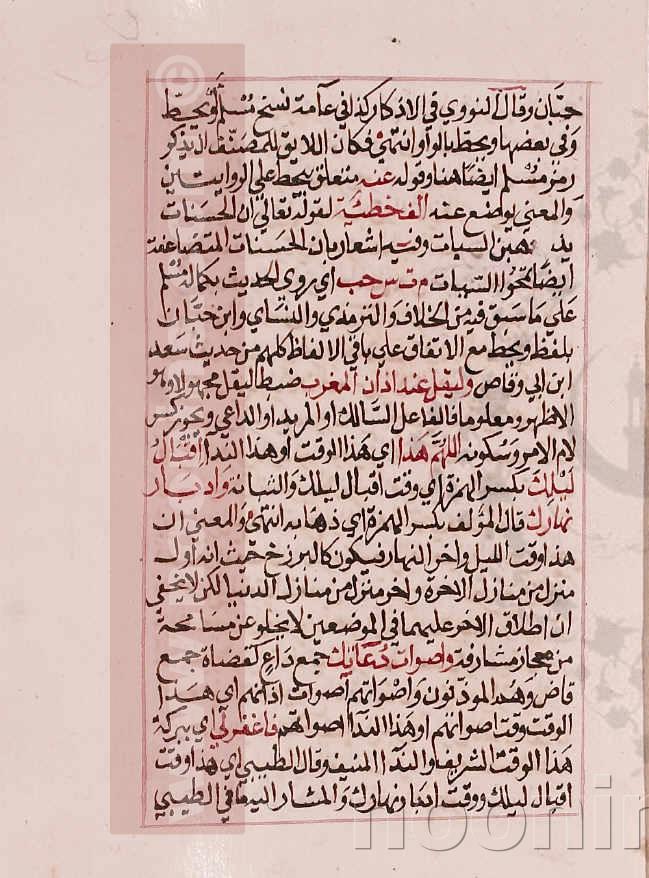 حبان وقال النووي في الاذكار كذا في عامة نسخ مسلم او يحط
وفي بعضها ويحط بالواو انتهى فكان اللايق للمصنف ان يذكر
رمز مسلم ايضا هنا وقوله عنه متعلق بيحط على الروايتين
والمعنى يوضع عنه الف خطيئة لقوله تعالى ان الحسنات
يذهبن السيات وفيه اشعار بان الحسنات المتضاعفة
ايضا تمحوا السيات م ت س حب اي روى الحديث بكماله مسلم
على ما سبق فيه من الخلاف والترمذي والنساي وابن حبان
بلفظ ويحط مع الاتفاق على باقي الالفاظ كلهم من حديث سعد
ابن ابي وقاص وليقل عند اذان المغرب ضبط ليقل مجهولا وهو
الاظهر ومعلوما فالفاعل السالك او المريد او الداعي ويجوز كسر
لام الامر وسكونه اللهم هذا اي هذا الوقت او هذا الندا اقبال
ليلك بكسر الهمزة اي وقت اقبال ليلك واتيانه وادبار
نهارك قال المؤلف بكسر الهمزة اي ذهابه انتهى والمعنى ان
هذا وقت الليل واخر النهار فيكون كالبرزخ حيث انه اول
منزل من منازل الاخرة واخر منزل من منازل الدنيا لكن لا يخفى
ان اطلاق الاخر عليهما في الموضعين لا يخلو عن مسامحة
من مجاز مشارفة واصوات دعاتك جمع داع كقضاة جمع
قاض وهم الموذنون واصواتهم اصوات اذانهم اي هذا
الوقت وقت اصواتهم او هذا الندا اصواتهم فاغفر لي اي ببركة
هذا الوقت الشريف والندا المنيف وقال الطيبي اي هذا وقت
اقبال ليلك ووقت ادبار نهارك والمشار اليه ما في الطيبي
noonir